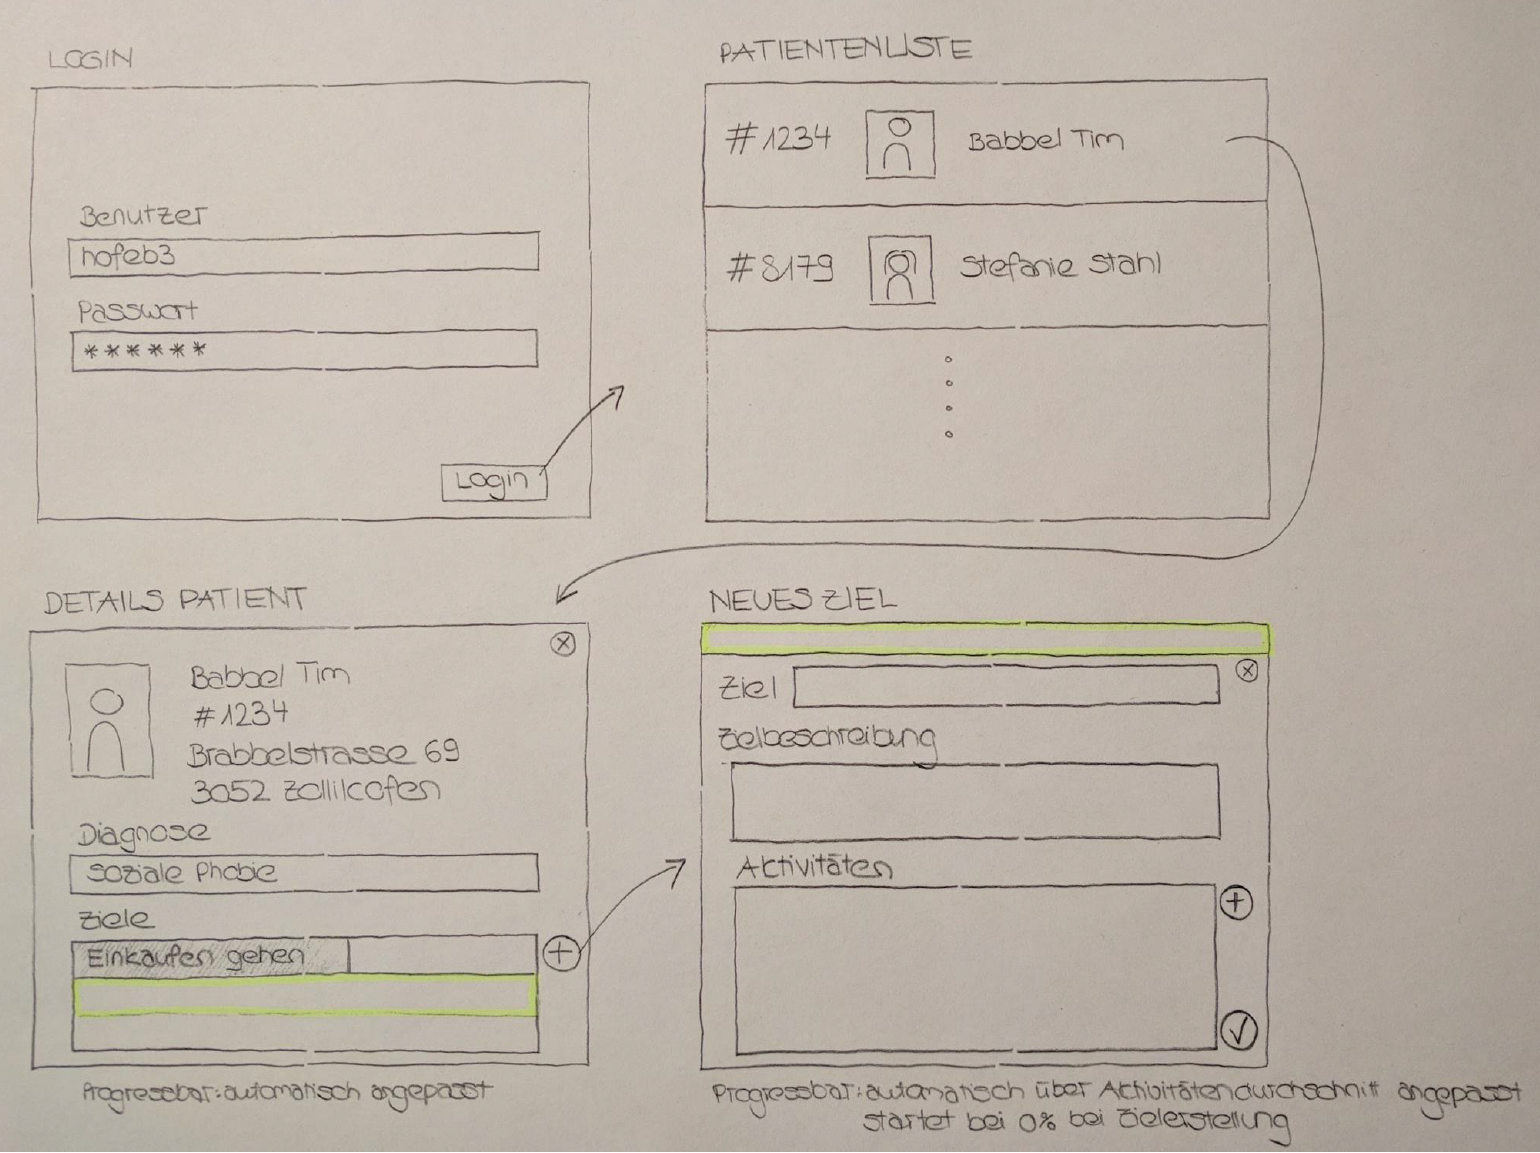 LOGIN
Benutzer
hofeb3
Passwort
******
Login
PATIENTENLISTE
#1234 Babbel Tim
#8179 Stefanie Stahl
DETAILS PATIENT
Babbel Tim
#1234
Brabbelstrasse 69
3052 Zollikofen
Diagnose
Soziale Phobie
Ziele
Einkaufen gehen
Progressbar: automatisch angepasst
NEUES ZIEL
Ziel
Zielbeschreibung
Aktivitäten
Progressbar: automatisch über Aktivitätendurchschnitt angepasst
startet bei 0% bei Zielerstellung